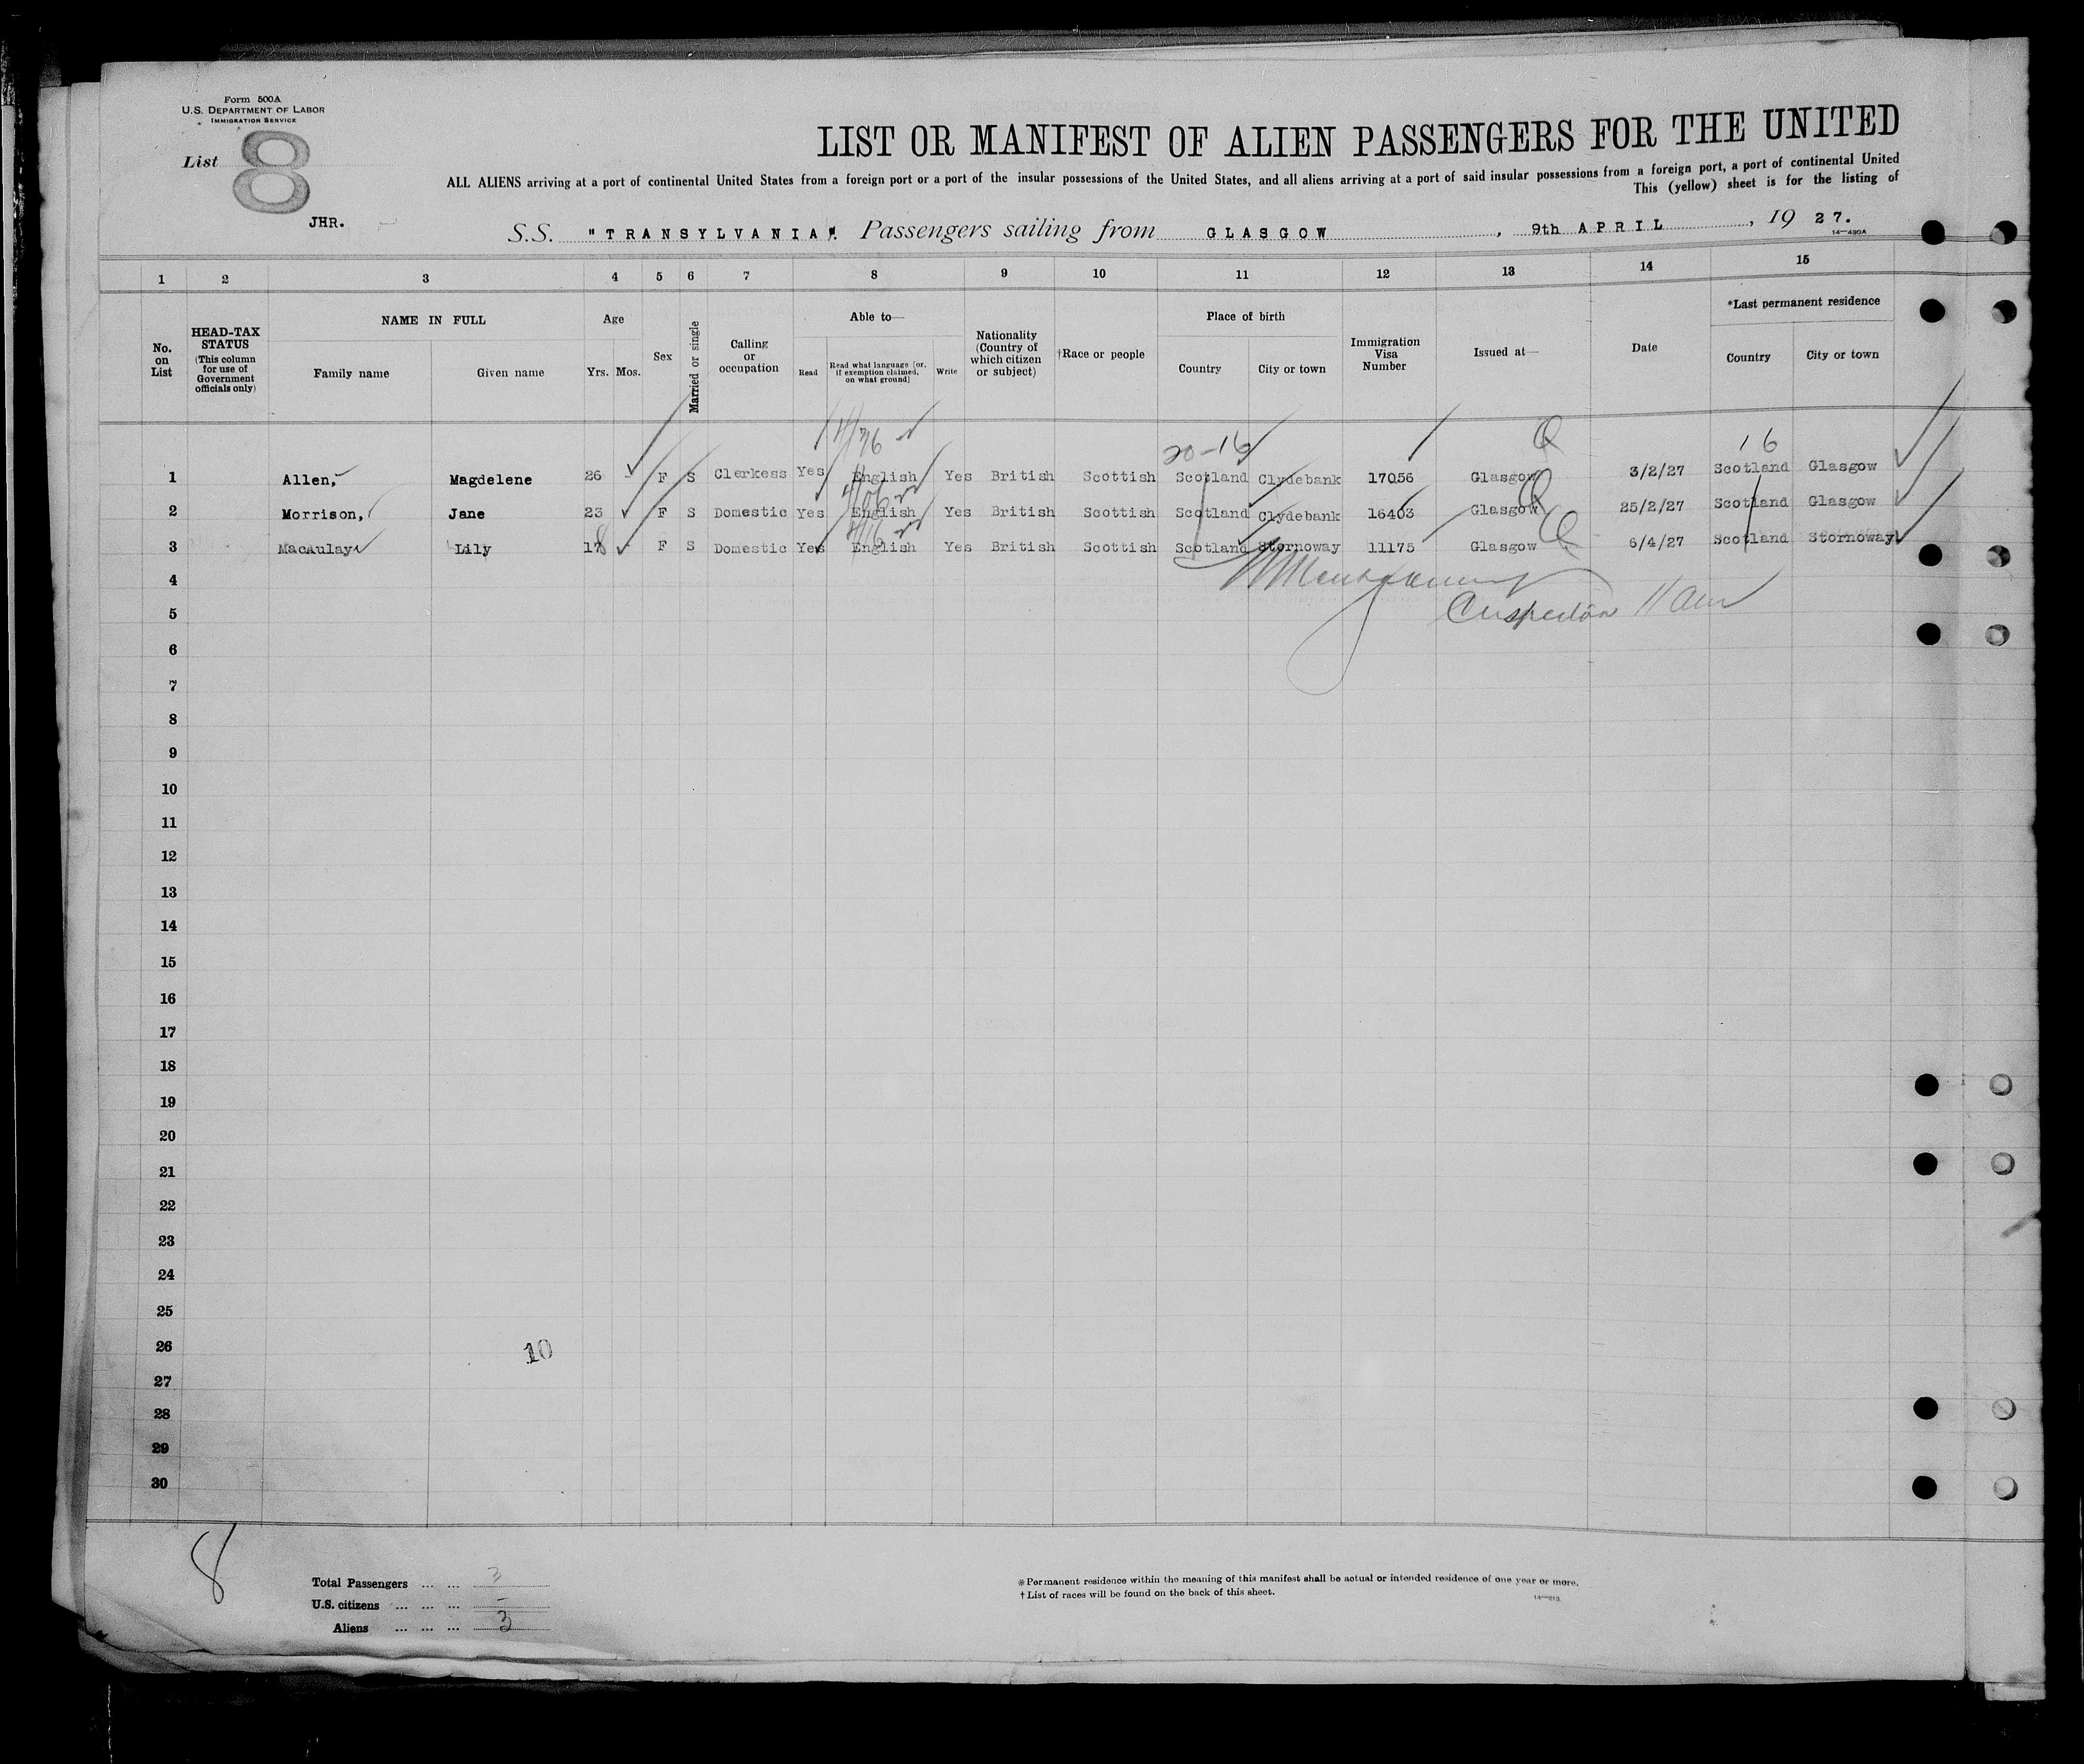 Form 500A
U.S. DEPARTMENT OF LABOR
IMMIGRATION SERVICE
List 8
JHR.
LIST OR MANIFEST OF ALIEN PASSENGERS FOR THE UNITED
ALL ALIENS arriving at a port of continental United States from a foreign port or a port of the insular possessions of the United States, and all aliens arriving at a port of said insular possessions from a foreign port, a port of continental United
This (yellow) sheet is for the listing of
S.S. "TRANSYLVANIA". Passengers sailing from GLASGOW, 9th APRIL, 19 27.
14—480A
1 2 3 4 5 6 7 8 9 10 11 12 13 14 15
No. on List
HEAD-TAX STATUS (This column for use of Government officials only)
NAME IN FULL
Family name
Given name
Age
Yrs. Mos.
Sex
Married or single
Calling or occupation
Able to—
Read
Read what language (or, if exemption claimed, on what ground)
Write
Nationality (Country of which citizen or subject)
†Race or people
Place of birth
Country
City or town
Immigration Visa Number
Issued at—
Date
*Last permanent residence
Country
City or town
20-16
16
1 Allen, Magdelene 26 F S Clerkess Yes English Yes British Scottish Scotland Clydebank 17056 Glasgow 3/2/27 Scotland Glasgow
2 Morrison, Jane 23 F S Domestic Yes English Yes British Scottish Scotland Clydebank 16403 Glasgow 25/2/27 Scotland Glasgow
3 Macaulay Lily 18 F S Domestic Yes English Yes British Scottish Scotland Stornoway 11175 Glasgow 6/4/27 Scotland Stornoway
4
5
6
7
8
9
10
11
12
13
14
15
16
17
18
19
20
21
22
23
24
25
26
10
27
28
29
30
8
Total Passengers ... ... 3
U.S. citizens ... ... ... -
Aliens ... ... ... 3
*Permanent residence within the meaning of this manifest shall be actual or intended residence of one year or more.
†List of races will be found on the back of this sheet.
14—213